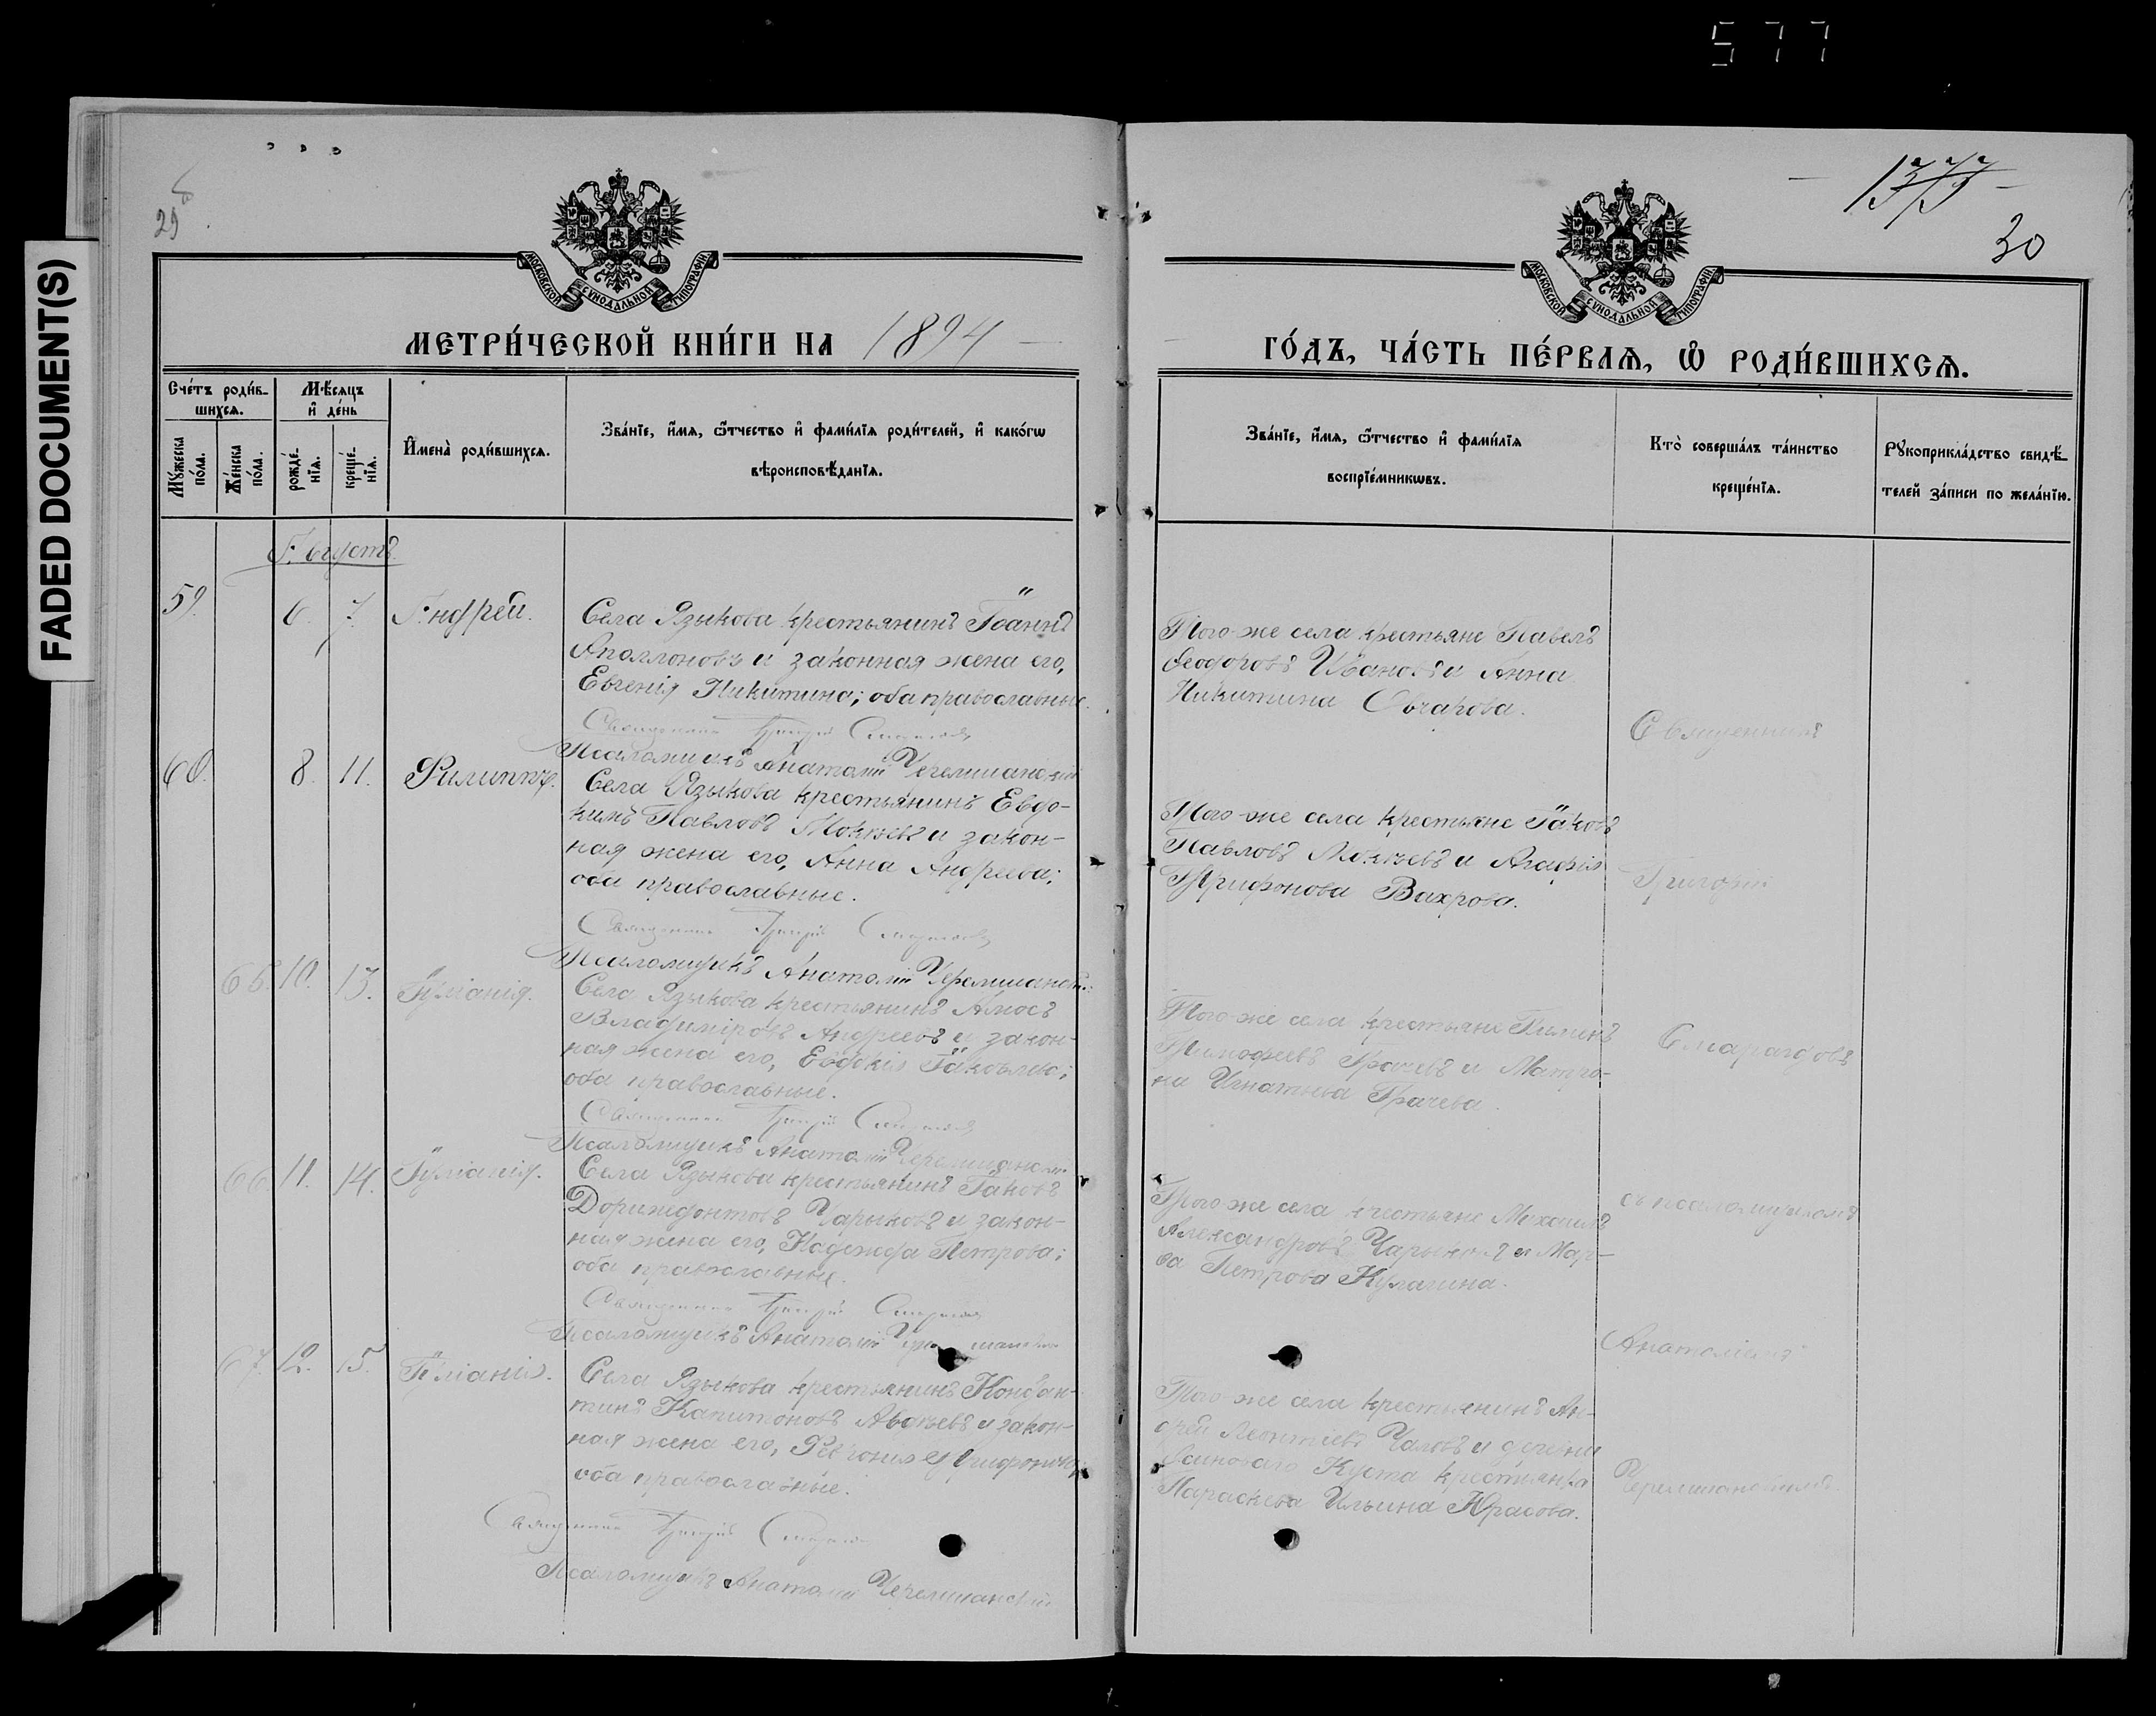 577
FADED DOCUMENT(S)
29
1373
30
МОСКОВСКОЙ СУНОДАЛЬНОЙ ТИПОГРАФІИ
МОСКОВСКОЙ СУНОДАЛЬНОЙ ТИПОГРАФІИ
МЕТРИ́ЧЕСКОЙ КНИ́ГИ НА 1894
ГО́ДЪ, ЧА́СТЬ ПЕ́РВАѦ, Ѡ҆ РОДИ́ВШИХСѦ.
Сче́тъ роди́в-
шихсѧ.
Мѣ́сѧцъ
и҆ де́нь
Мꙋ́жеска
по́ла.
Же́нска
по́ла.
рожде́-
нїѧ.
креще́-
нїѧ.
И҆мена̀ роди́вшихсѧ.
Зва́нїе, и҆́мѧ, ѻ҆́тчество и҆ фами́лїѧ роди́телей, и҆ како́гѡ
вѣроисповѣ́данїѧ.
Зва́нїе, и҆́мѧ, ѻ҆́тчество и҆ фами́лїѧ
воспрїе́мникѡвъ.
Кто̀ соверша́лъ та́инство
креще́нїѧ.
Рꙋкоприкла́дство свидѣ́-
телей за́писи по жела́нїю.
Августъ.
59. 6. 7. Андрей.
Села Языкова крестьянинъ Іоаннъ
Аполлоновъ и законная жена его,
Евгенія Никитина; оба православные.
Священникъ Григорій Смарагдовъ
Псаломщикъ Анатолій Черемшанскій
Того-же села крестьяне Павелъ
Ѳеодоровъ Ивановъ и Анна
Никитина Овчарова.
60. 8. 11. Филиппъ.
Села Языкова крестьянинъ Евдо-
кимъ Павловъ Мокѣевъ и закон-
ная жена его, Анна Андреева;
оба православные.
Священникъ Григорій Смарагдовъ
Псаломщикъ Анатолій Черемшанскій
Того-же села крестьяне Іаковъ
Павловъ Мокѣевъ и Агафія
Трифонова Вахрова.
65. 10. 13. Іуліанія.
Села Языкова крестьянинъ Амосъ
Владиміровъ Андреевъ и закон-
ная жена его, Евдокія Іаковлева;
оба православные.
Священникъ Григорій Смарагдовъ
Псаломщикъ Анатолій Черемшанскій
Того-же села крестьяне Пименъ
Тимофеевъ Грачевъ и Матро-
на Игнатьева Грачева.
66. 11. 14. Іуліанія.
Села Языкова крестьянинъ Іаковъ
Доримедонтовъ Чарыковъ и закон-
ная жена его, Надежда Петрова;
оба православные.
Священникъ Григорій Смарагдовъ
Псаломщикъ Анатолій Черемшанскій
Того-же села крестьяне Михаилъ
Александровъ Чарыковъ и Мар-
ѳа Петрова Кулагина.
67. 12. 15. Іуліанія.
Села Языкова крестьянинъ
Капитоновъ Авдѣевъ и закон-
ная жена его, Февронія Трифонова;
оба православные.
Священникъ Григорій Смарагдовъ
Псаломщикъ Анатолій Черемшанскій
Того-же села крестьянинъ Ан-
дрей Леонтіевъ Чаловъ и деревни
Осиноваго Куста крестьянка
Параскева Ильина Юрасова.
Священникъ
Григорій
Смарагдовъ
съ псаломщикомъ
Анатоліемъ
Черемшанскимъ.